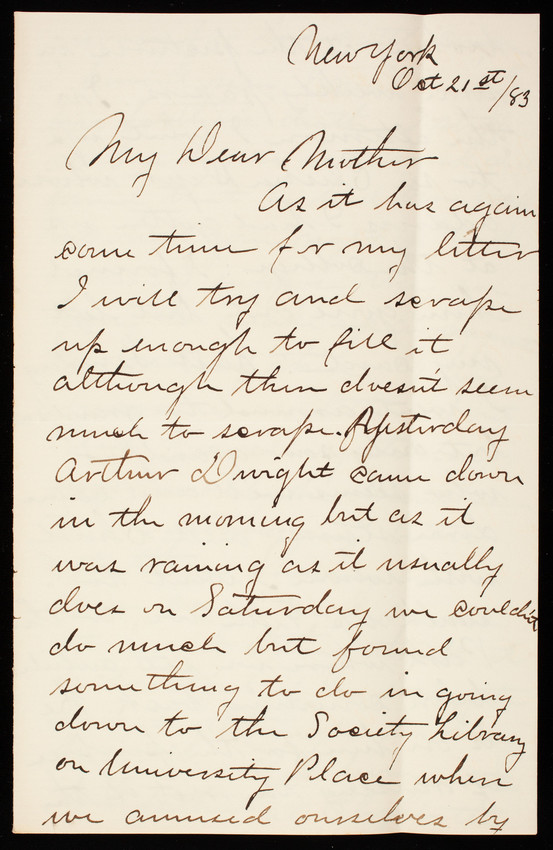 New York
Oct 21st/83
My Dear Mother
As it has again
come time for my letter
I will try and scrape
up enough to fill it
although there doesn't seem
much to scrape. Yesterday
Arthur Dwight came down
in the morning but as it
was raining as it usually
does on Saturday we couldn't
do much but found
something to do in going
down to the Society Library
on University Place where
we amused ourselves by